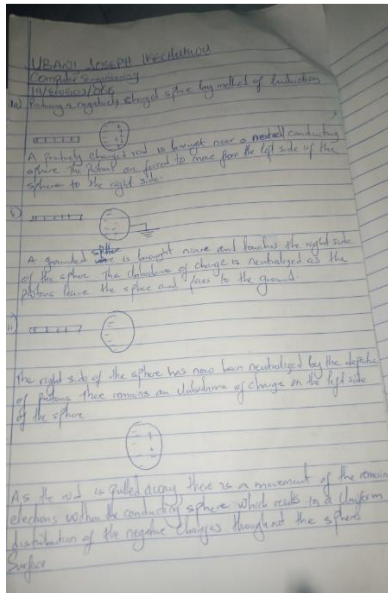 UBANI JOSEPH IKECHUKWU
Computer Engineering
Producing a negatively charged sphere by method of Induction
A positively charged rod is brought near a neutral conducting
sphere. The protons are forced to move from the left side of the
sphere to the right side.
A grounded is brought and touches the right side
of the sphere. The of charge is neutralized as the
protons leave the sphere and to the ground.
The right side of the sphere has now been neutralized by the
of protons there remains an of charge on the left side
of the sphere
As the rod is pulled away, there is a movement of the remain
electrons within the conducting sphere which results in a Uniform
distribution of the negative charges throughout the sphere
Surface